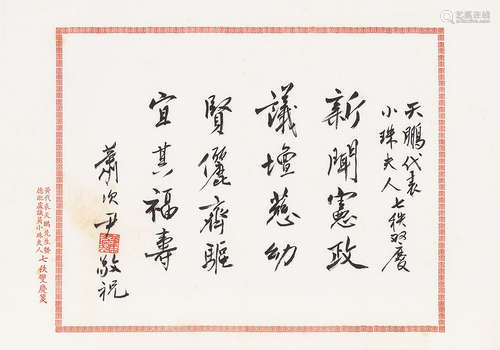 天鵬代表
小珠夫人七秩双慶
新聞憲政
議壇慈幼
賢儷齊驅
宜其福壽
蕭次尹
敬祝
黃代表天鵬先生暨
德配盧議員小珠夫人
七秩雙慶箋